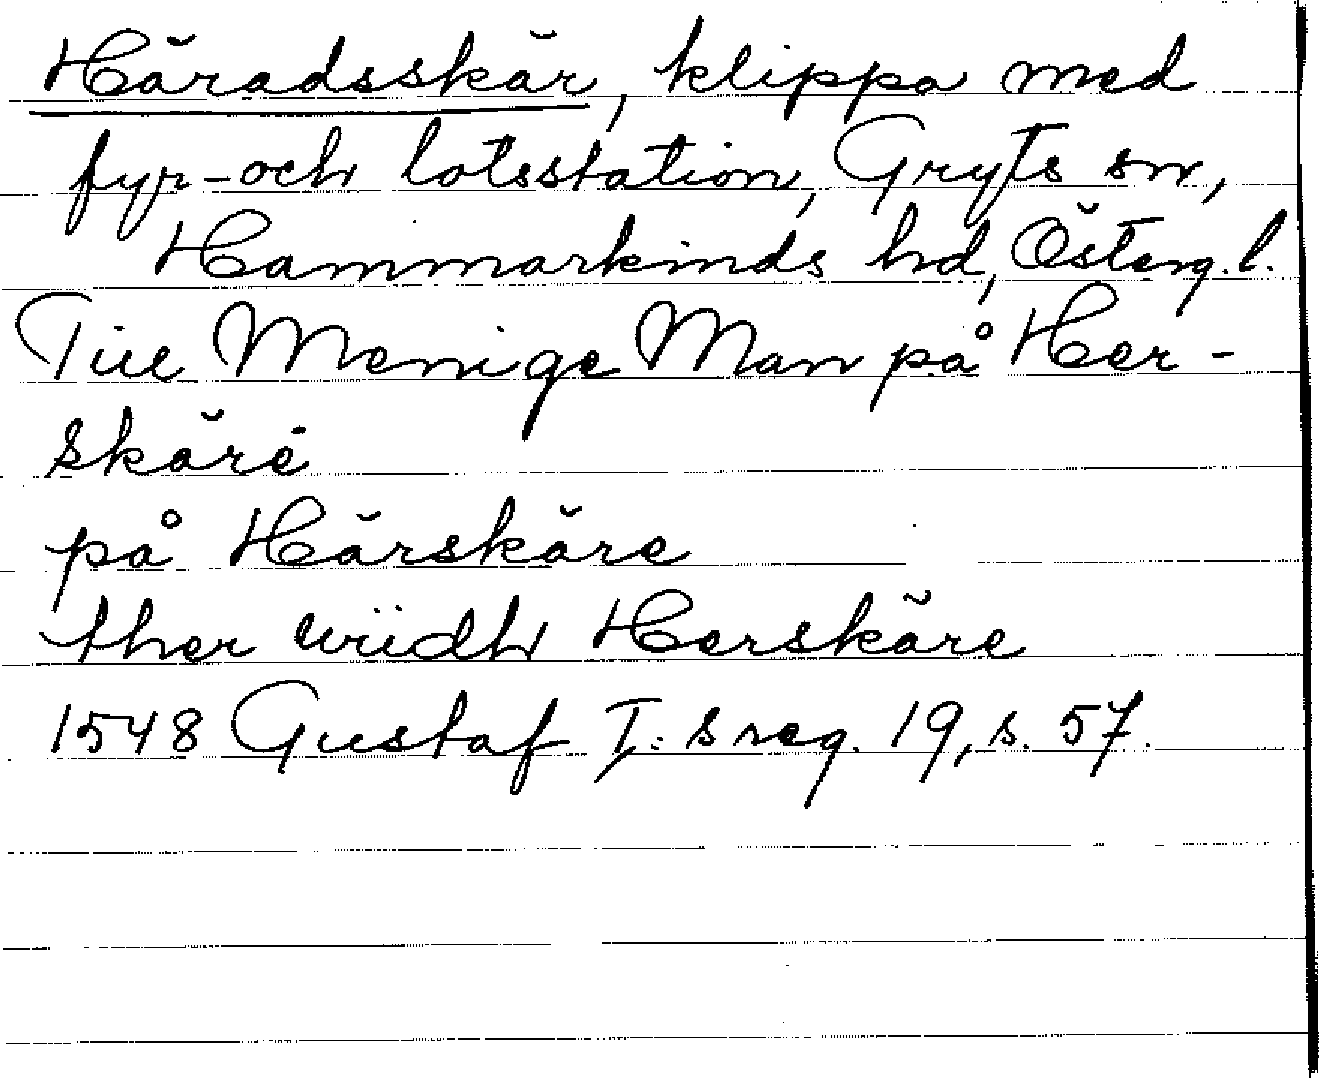 Häradsskär, klippa med
fyr- och lotsstation, Gryts sn,
Hammarkinds hd, Österg. l.
Till Menige Man på Her-
skäre
på Härskäre
ther wüdh Herskäre
1548 Gustaf I:s reg. 19, s. 57.